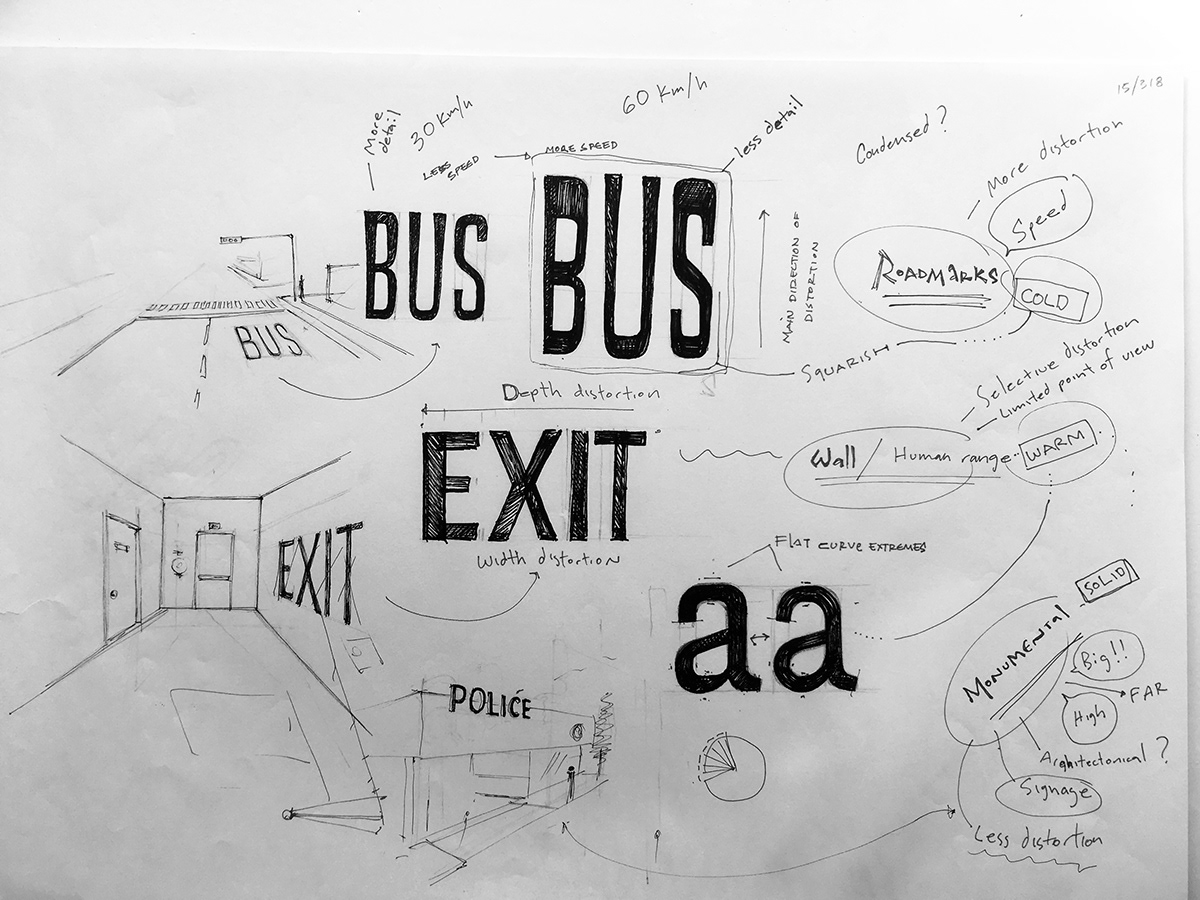 15/3 18
More
detail
30 Km/h
60 Km/h
less detail
Condensed?
LESS
SPEED
MORE SPEED
More distortion
Speed
BUS
BUS
MAIN DIRECTION OF
DISTORTION
ROADMARKS
COLD
BUS
SQUARISH
Depth distortion
Selective distortion
Limited point of view
EXIT
Wall / Human range
WARM
EXIT
Width distortion
FLAT CURVE EXTREMES
aa
SOLID
MONUMENTAL
Big!!
FAR
High
POLICE
Arghitectonical?
Signage
Less distortion